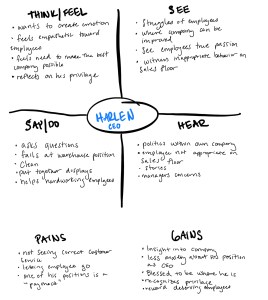 THINK/FEEL
• wants to create emotion
• feels empathetic toward
employees
• feels need to make the best
company possible
• reflects on his privilege
SEE
• Struggles of employees
• where company can be
improved
• See employees true passion
• witness inappropriate behavior on
Sales floor
HARLEN
CEO
SAY/DO
• asks questions
• fails at warehouse position
• Clean
• put together displays
• helps hardworking employees
HEAR
• politics within own company
• employee not appropriate on
sales floor
• stories
• managers concerns
PAINS
• not seeing correct customer
service
• letting employee go
• one of his positions is a
"paycheck"
GAINS
• Insight into company
• less anxiety about his position
as CEO
• Blessed to be where he is
• recognizes privilege
• reward deserving employees